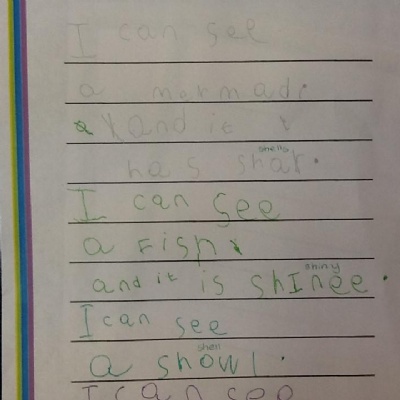 I can see
a mermad.
and it
shells
has shar.
I can see
a Fish
shiny
and it is shInee.
I can see
shell
a showl.
I can see